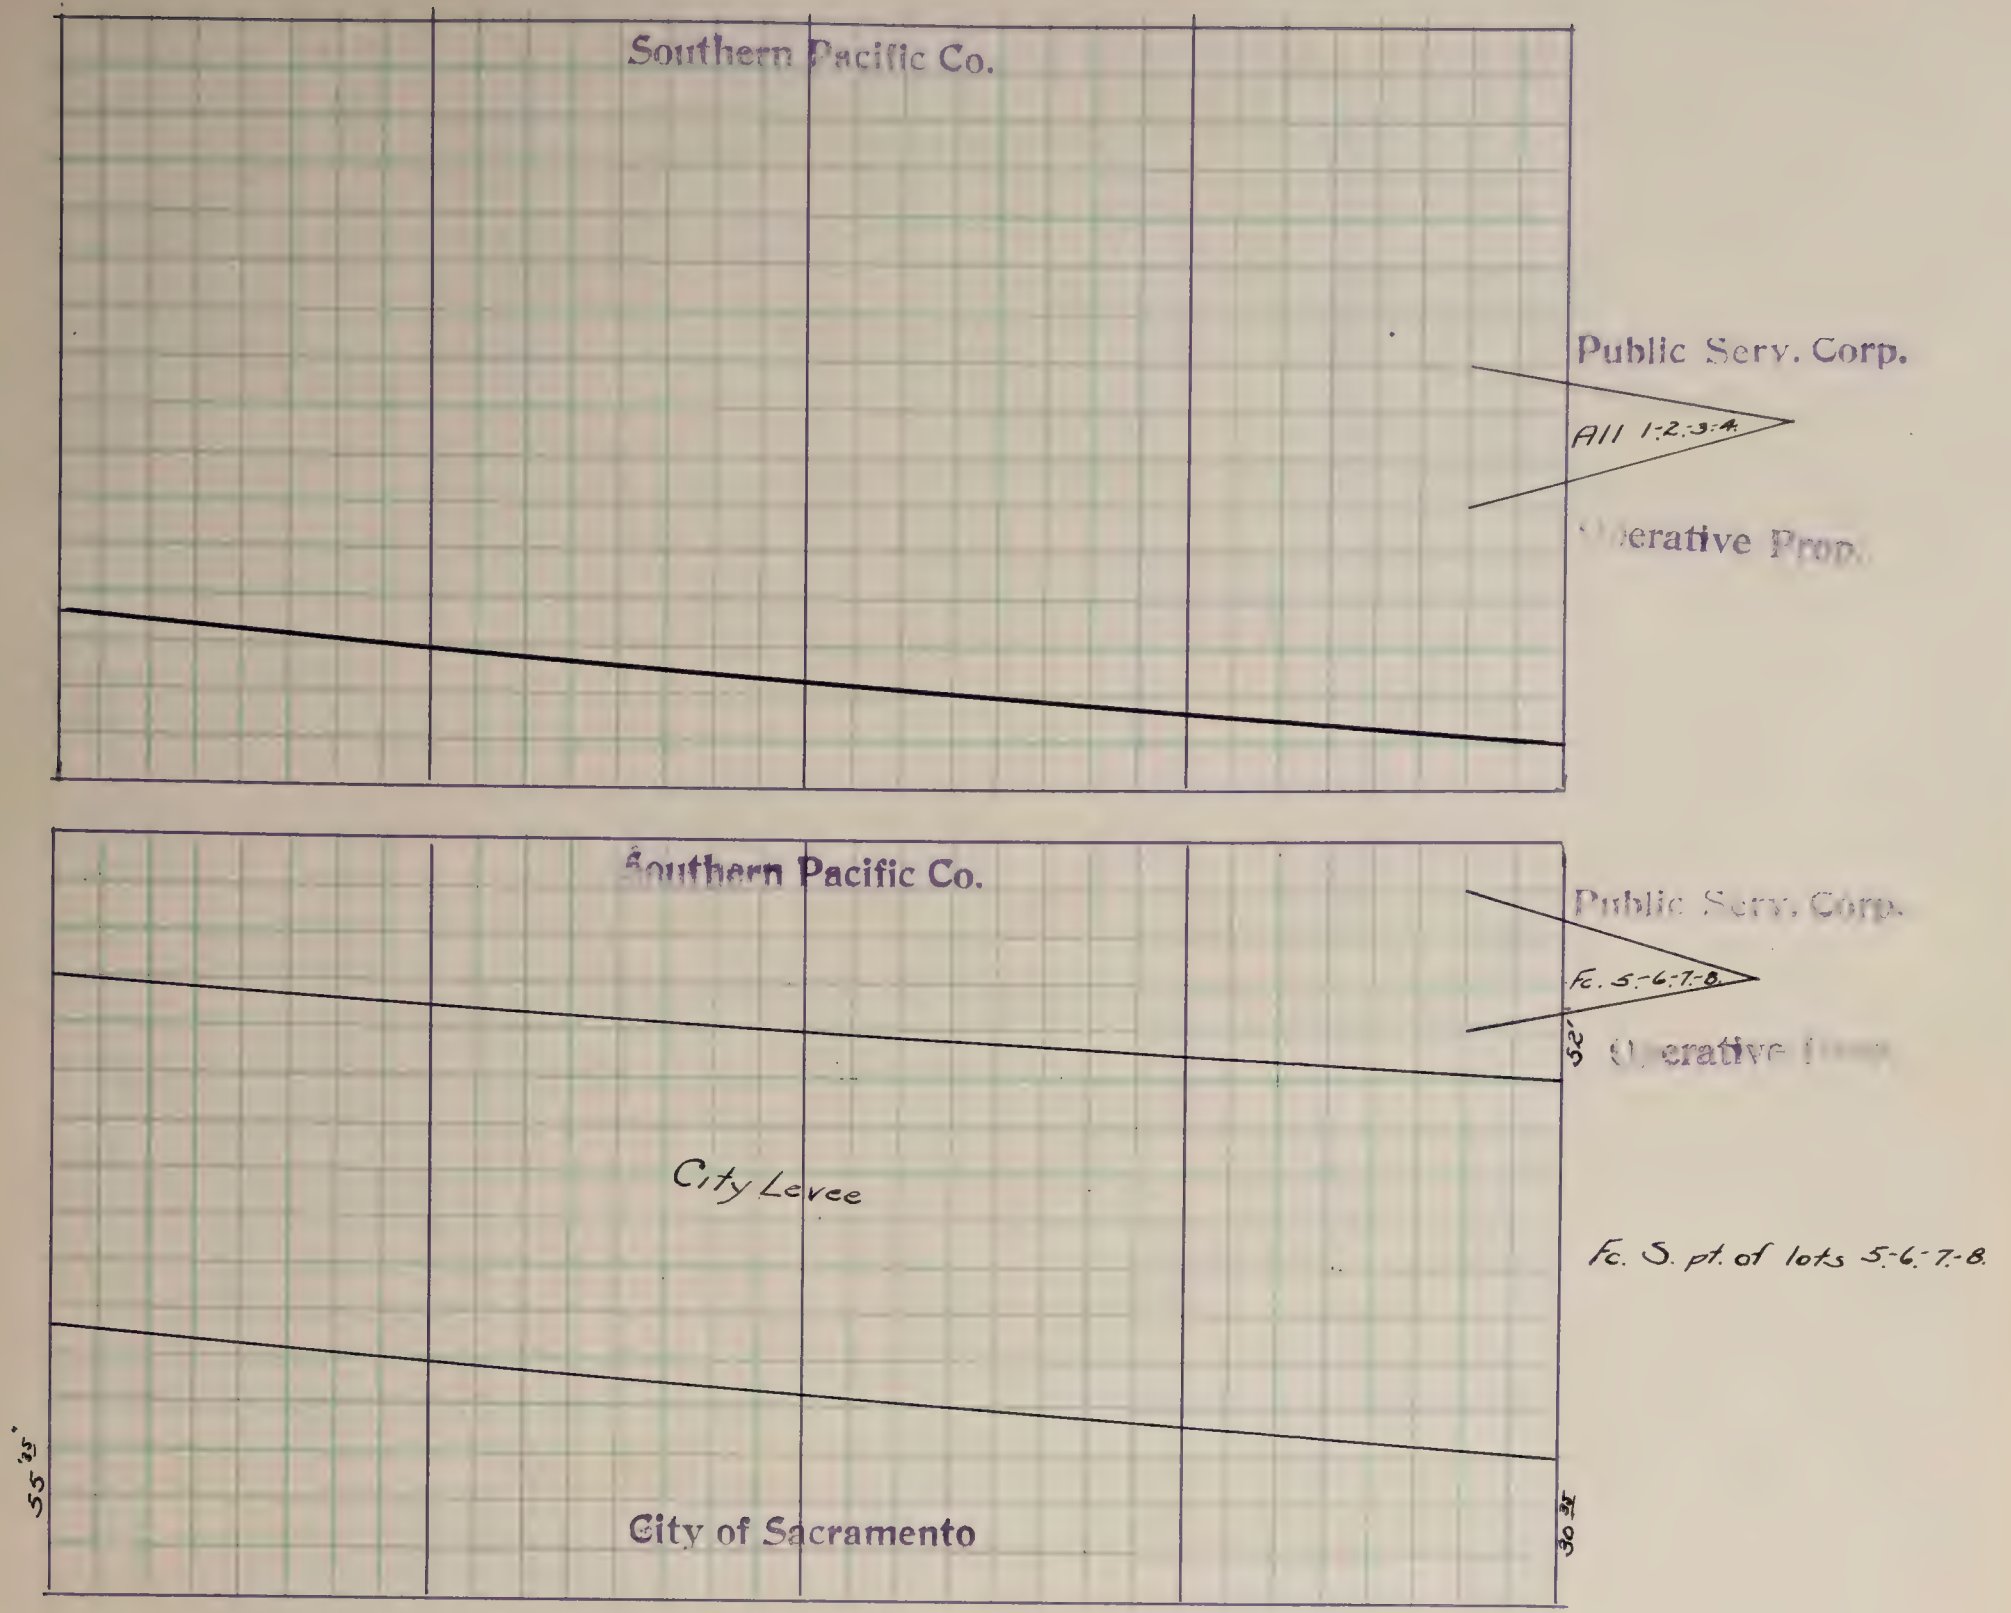 Southern Pacific Co.
Public Serv. Corp.
All 1-2-3-4.
Operative Prop.
Southern Pacific Co.
Public Serv. Corp.
Fc. 5-6-7-8.
52'
Operative
City Levee
Fc. S. pt. of lots 5-6-7-8.
55 35
City of Sacramento
30 35